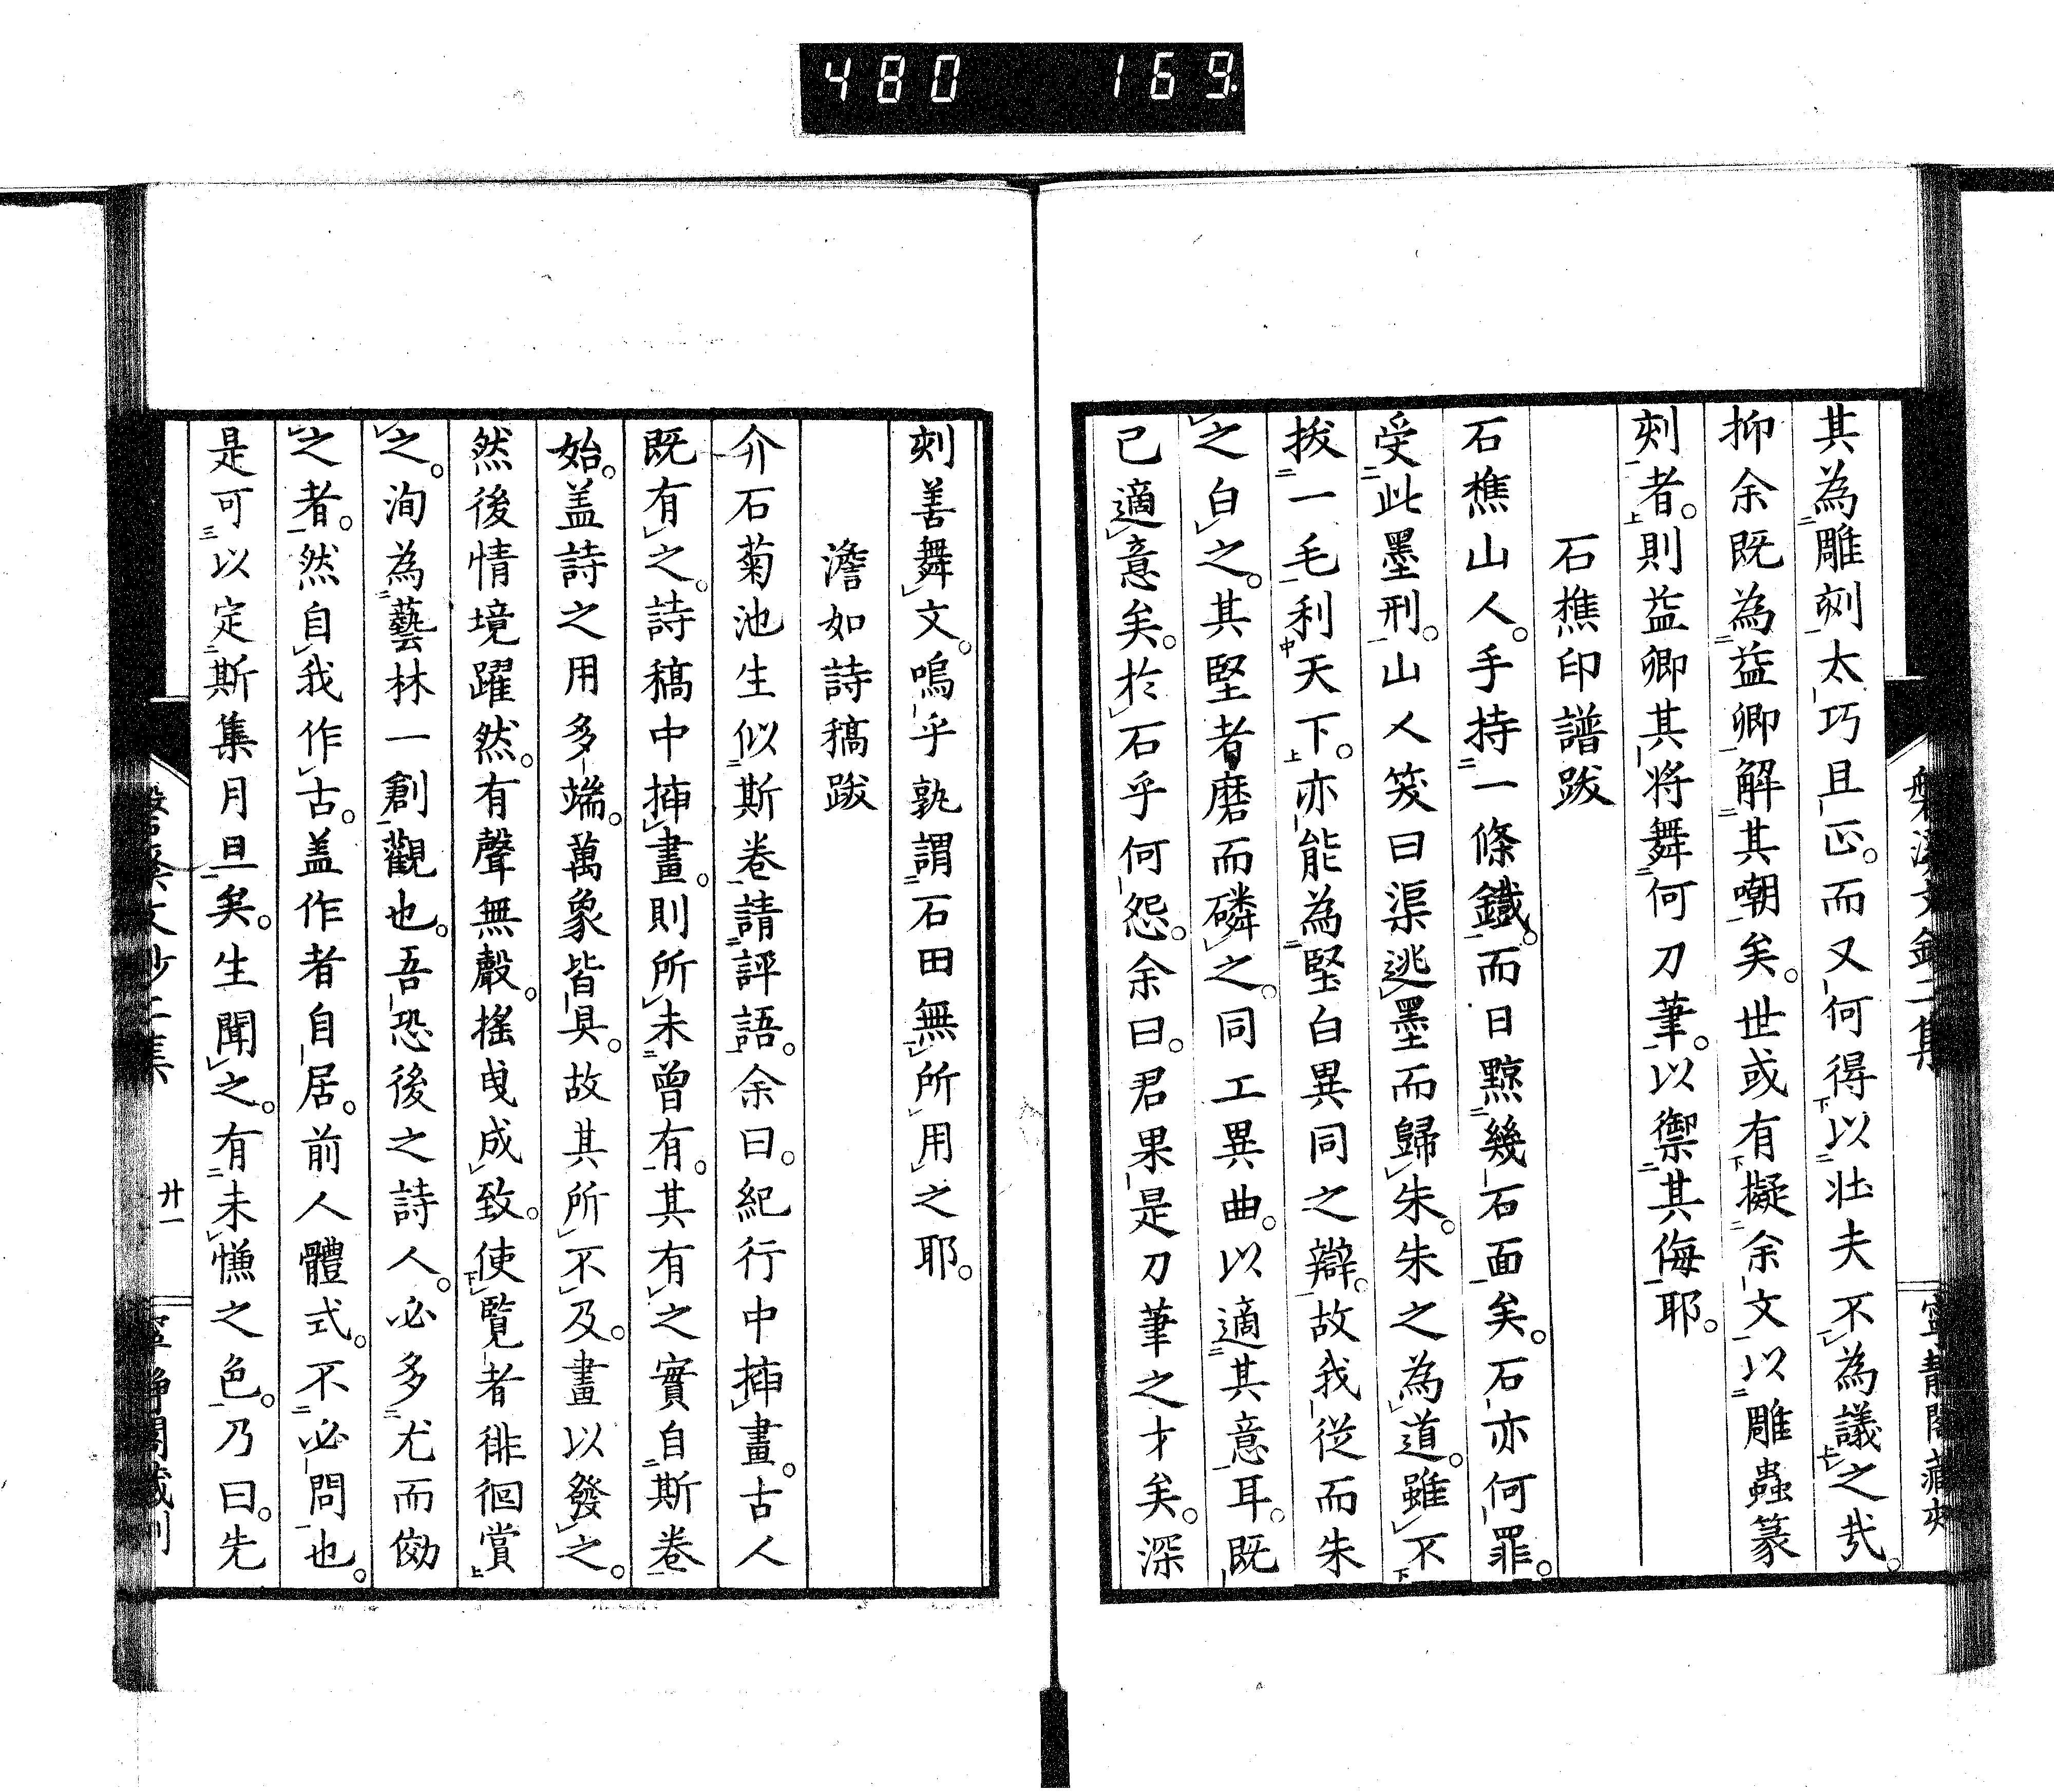 480 169
其為雕刻太巧且正。而又何得以壯夫不為議之哉。
抑余既為益卿解其嘲矣。世或有擬余文以雕蟲篆
刻者。則益卿其將舞何刀筆。以禦其侮耶。
石樵印譜跋
石樵山人。手持一條鐵。而日黥幾石面矣。石亦何罪。
受此墨刑。山人筊曰渠逃墨而歸朱。朱之為道。雖不
拔一毛利天下。亦能為堅白異同之辯。故我從而朱
之白之。其堅者磨而磷之。同工異曲。以適其意耳。既
已適意矣。於石乎何怨。余曰。君果是刀筆之才矣。深
刻善舞文。嗚乎孰謂石田無所用之耶。
澹如詩稿跋
介石菊池生似斯卷請評語。余曰。紀行中揷畫。古人
既有之。詩稿中揷畫。則所未曾有。其有之實自斯卷
始。盖詩之用多端。萬象皆具。故其所不及。畫以發之。
然後情境躍然。有聲無聲。搖曳成致。使覧者徘徊賞
之。洵為藝林一創觀也。吾恐後之詩人。必多尤而傚
之者。然自我作古。盖作者自居。前人體式。不必問也。
是可以定斯集月旦矣。生聞之。有未慊之色。乃曰。先
廿一